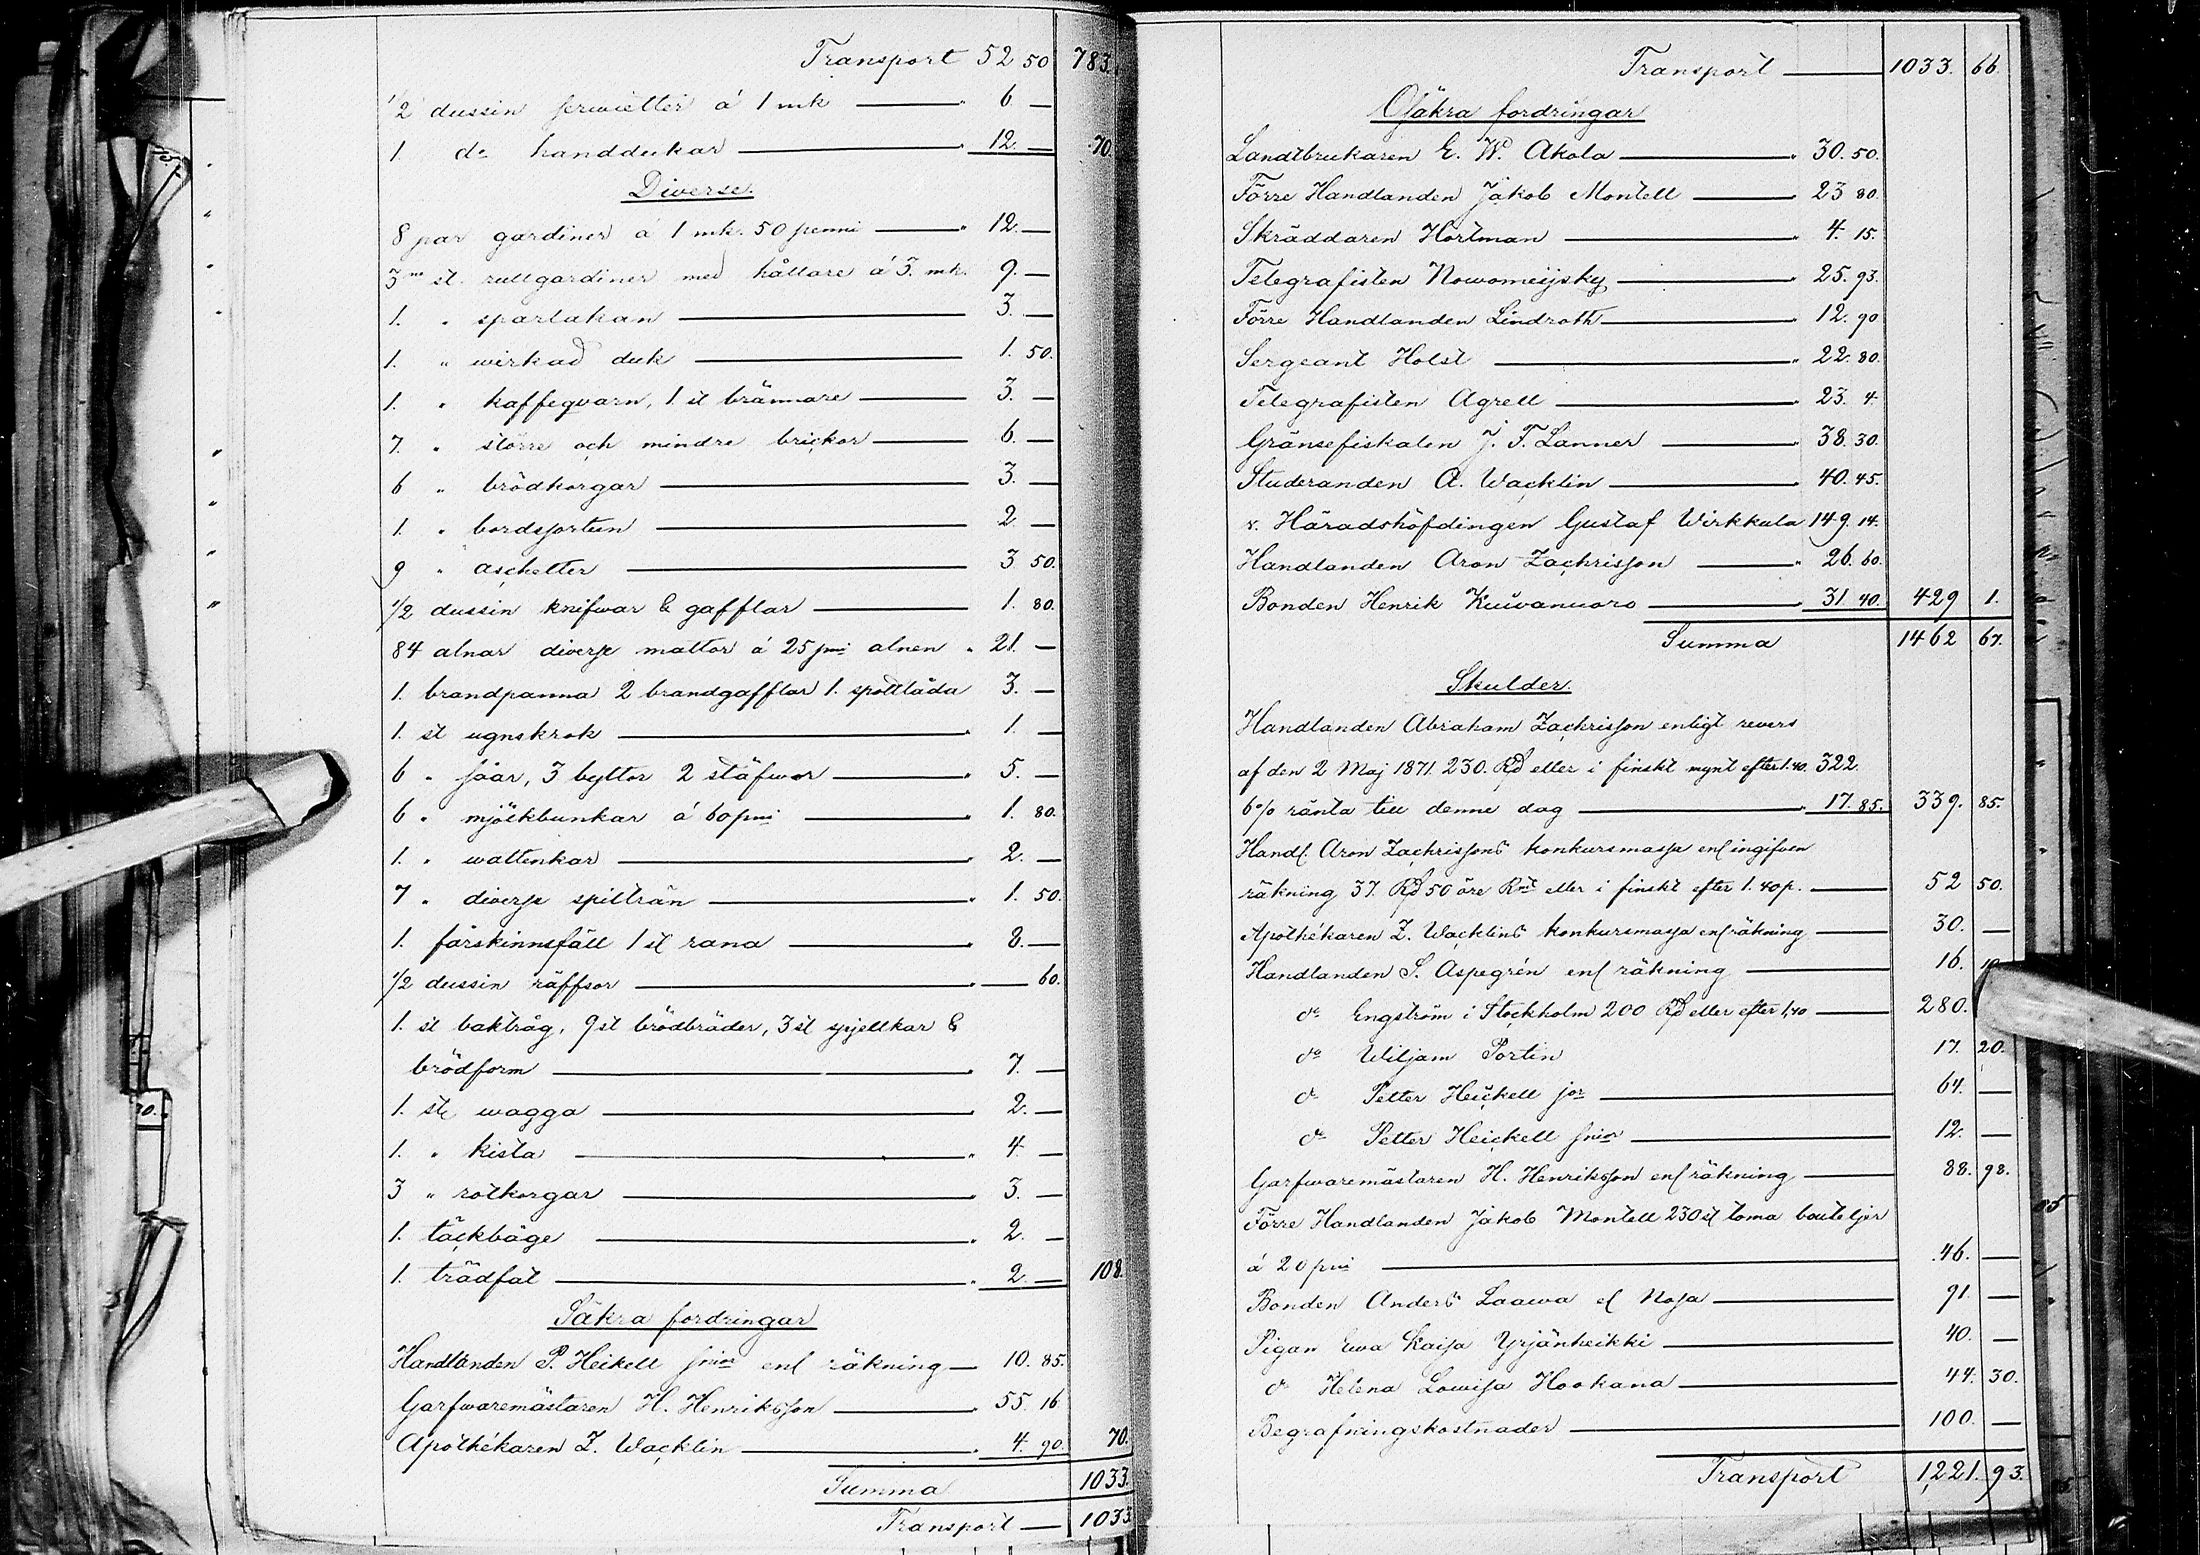 Transport 52 50 783.
1/2 dussin serwietter á 1 mk — 6 —
1 do handdukar — 12. — 70.
Diverse.
8 par gardiner á 1 mk. 50 penni — 12. —
3ne st. rullgardiner med hållare á 3. mk. 9. —
1. " sparlakan — 3. —
1. " wirkad duk — 1. 50.
1. " kaffeqvarn, 1 st brännare — 3. —
7. " större och mindre brickor — 6. —
6 " brödkorgar — 3. —
1. " bordssortun — 2 —
9 " aschetter — 3 50.
1/2 dussin knifwar & gafflar — 1. 80.
84 alnar diverse mattor á 25 pni alnen " 21. —
1. brandpanna 2 brandgafflar 1. spottlåda 3. —
1. st ugnskrok — 1. —
6 " såar, 3 byttor 2 stäfwor — 5. —
6 " mjölkbunkar á 60 pni — 1. 80.
1. " wattenkar — 2. —
7 " diverse spilträn — 1. 50.
1. fårskinnsfäll 1 st rana — 8. —
1/2 dussin räffsor — 60.
1. st baktråg, 9 st brödbräder, 3 st spjellkar &
brödform — 7. —
1. st wagga — 2. —
1. " kista — 4 —
3 " rotkorgar — 3. —
1. täckbåge — 2. —
1. trädfat — 2. — 108.
Säkra fordringar
Handlanden P. Heikell snior enl räkning — 10. 85.
Garfwaremästaren H. Henriksson — 55. 16
Apothékaren Z. Wacklin — 4. 90. 70.
Summa 1033.
Transport — 1033
Transport — 1033. 66.
Osäkra fordringar
Landtbrukaren E. W. Akola — 30. 50.
Förre Handlanden Jakob Montell — 23 80.
Skräddaren Hortman — 4. 15.
Telegrafisten Nowomeijsky — 25. 93.
Förre Handlanden Lindroth — 12. 90
Sergeant Holst — 22. 80.
Telegrafisten Agrell — 23. 4.
Gränsefiskalen J. F. Lanner — 38. 30.
Studeranden A. Wacklin — 40. 45.
v. Häradshöfdingen Gustaf Wirkkula 149. 14.
Handlanden Aron Zachrisson — 26. 60.
Bonden Henrik Kuivanuoro — 31. 40. 429 1.
Summa 1462 67.
Skulder.
Handlanden Abraham Zachrisson enligt revers
af den 2 Maj 1871. 230. Rd eller i finskt mynt efter 1.40. 322.
6% ränta till denne dag — 17. 85. 339. 85.
Handl. Aron Zachrissons konkursmassa enl ingifven
räkning 37. Rd 50 öre Rmt eller i finskt efter 1. 40 p. — 52 50.
Apothékaren Z. Wacklins konkursmassa enl räkning — 30. —
Handlanden S. Aspegrén enl räkning — 16. 10
do Engström i Stockholm 200 Rd eller efter 1,40 — 280.
do Wiljam Portin 17. 20.
do Petter Heickell jor — 64. —
do Petter Heickell snior — 12. —
Garfwaremästaren H. Henriksson enl räkning — 88. 98.
Förre Handlanden Jakob Montell 230 st toma bouteljer
á 20 pni — 46. —
Bonden Anders Laawa el Nosa — 91. —
Pigan Ewa Kaisa Yrjänheikki — 40. —
do Helena Lowisa Hookana — 44. 30.
Begrafningskostnader — 100. —
Transport 1,221. 93.